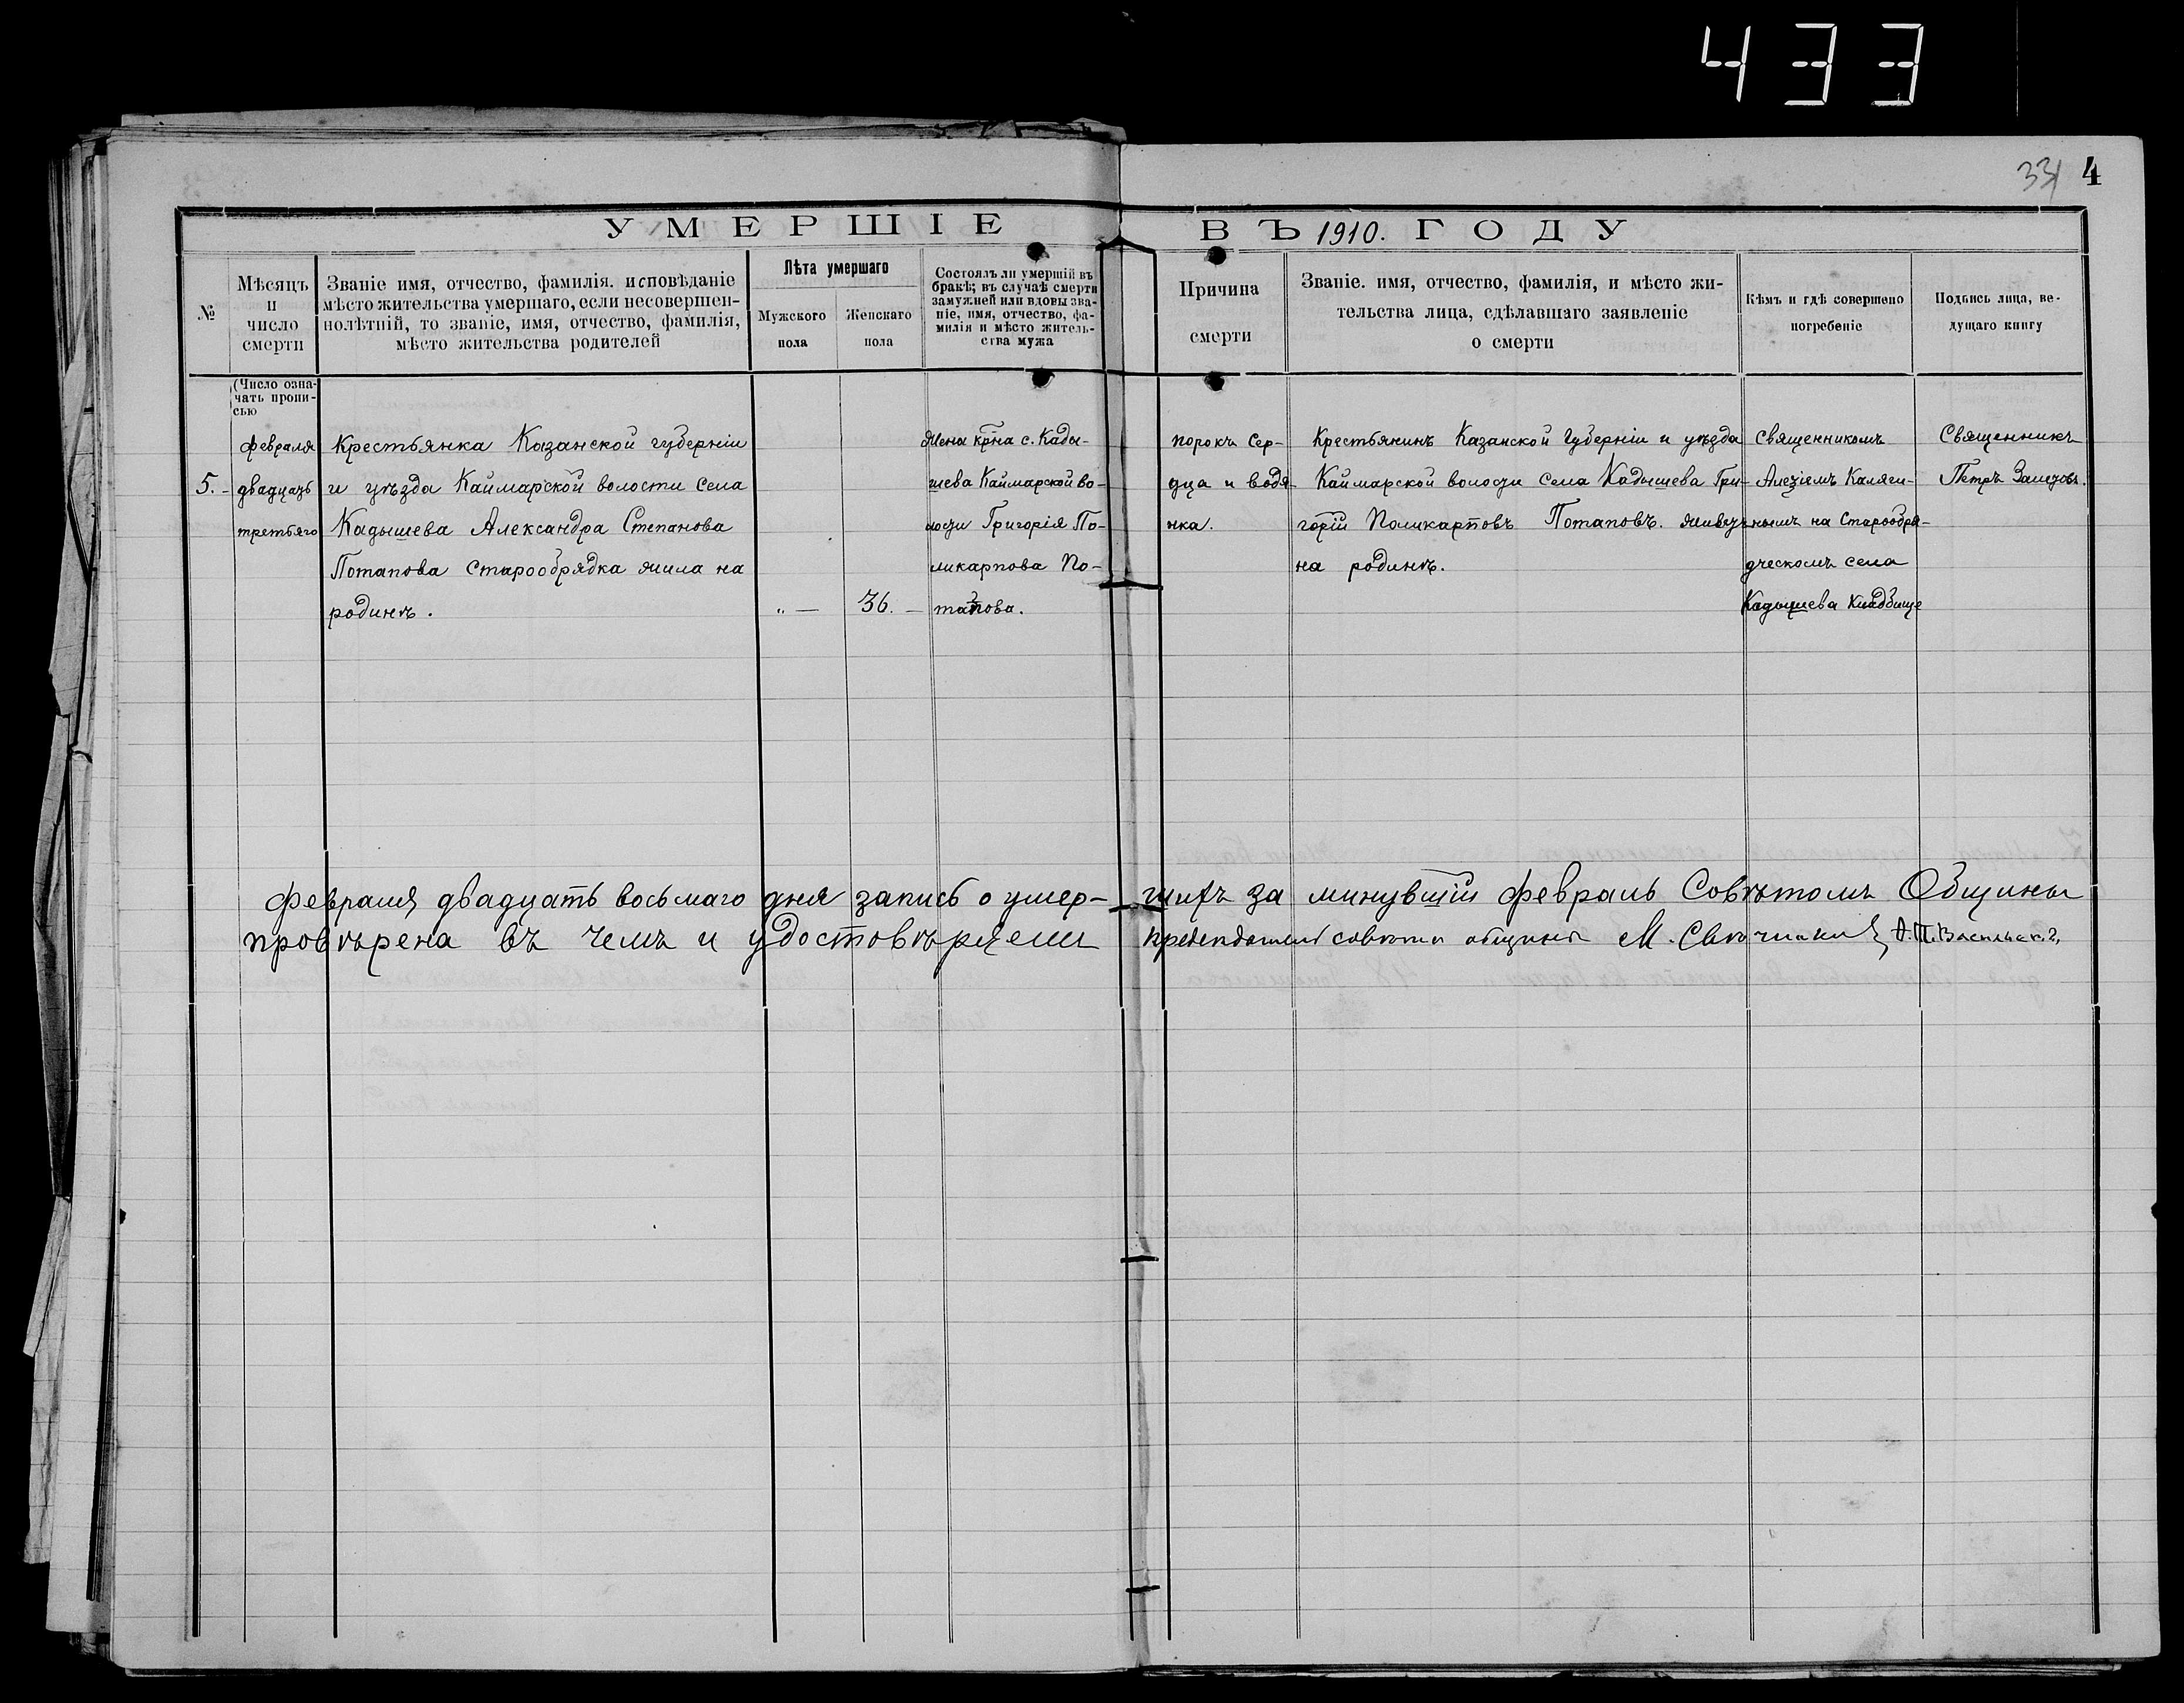 433
331 4
УМЕРШІЕ ВЪ 1910. ГОДУ
№
Мѣсяцъ
и
число
смерти
Званіе имя, отчество, фамилія. исповѣданіе
мѣсто жительства умершаго, если несовершен-
нолѣтній, то званіе, имя, отчество, фамилія,
мѣсто жительства родителей
Лѣта умершаго
Мужского
пола
Женскаго
пола
Состоялъ ли умершій въ
бракѣ; въ случаѣ смерти
замужней или вдовы зва-
ніе, имя, отчество, фа-
милія и мѣсто житель-
ства мужа
Причина
смерти
Званіе. имя, отчество, фамилія, и мѣсто жи-
тельства лица, сдѣлавшаго заявленіе
о смерти
Кѣмъ и гдѣ совершено
погребеніе
Подпись лица, ве-
дущаго книгу
(Число озна-
чать пропи-
сью
5.-
февраля
двадцать
третьяго
Крестьянка Казанской губерніи
и уѣзда Каймарской волости села
Кадышева Александра Степанова
Потапова старообрядка жила на
родинѣ.
„ —
36. —
Жена крна с. Кады-
шева Каймарской во-
лости Григорія По-
ликарпова По-
тапова.
порокъ сер-
дца и водя-
нка.
Крестьянинъ Казанской Губерніи и уѣзда
Каймарской волости села Кадышева Гри-
горій Поликарповъ Потаповъ. живетъ
на родинѣ.
Священникомъ
Алезіемъ Каляги-
нымъ на Старообря-
дческомъ села
Кадышева кладбище
Священникъ
Петръ Залетовъ.
Февраля двадцать восьмаго дня запись о умер-шихъ за минувшій февраль Совѣтомъ Общины
провѣрена въ чемъ и удостовѣряемъ председатель совѣта общины М.